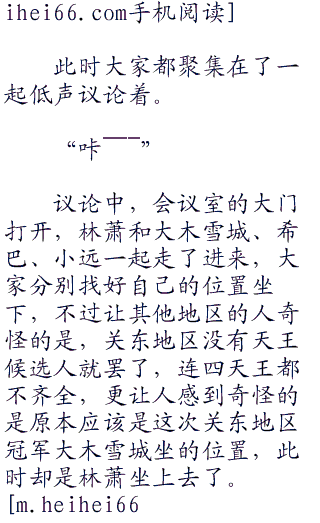 ihei66.com手机阅读]
此时大家都聚集在了一
起低声议论着。
“咔———”
议论中，会议室的大门
打开，林萧和大木雪城、希
巴、小远一起走了进来，大
家分别找好自己的位置坐
下，不过让其他地区的人奇
怪的是，关东地区没有天王
候选人就罢了，连四天王都
不齐全，更让人感到奇怪的
是原本应该是这次关东地区
冠军大木雪城坐的位置，此
时却是林萧坐上去了。
[m.heihei66